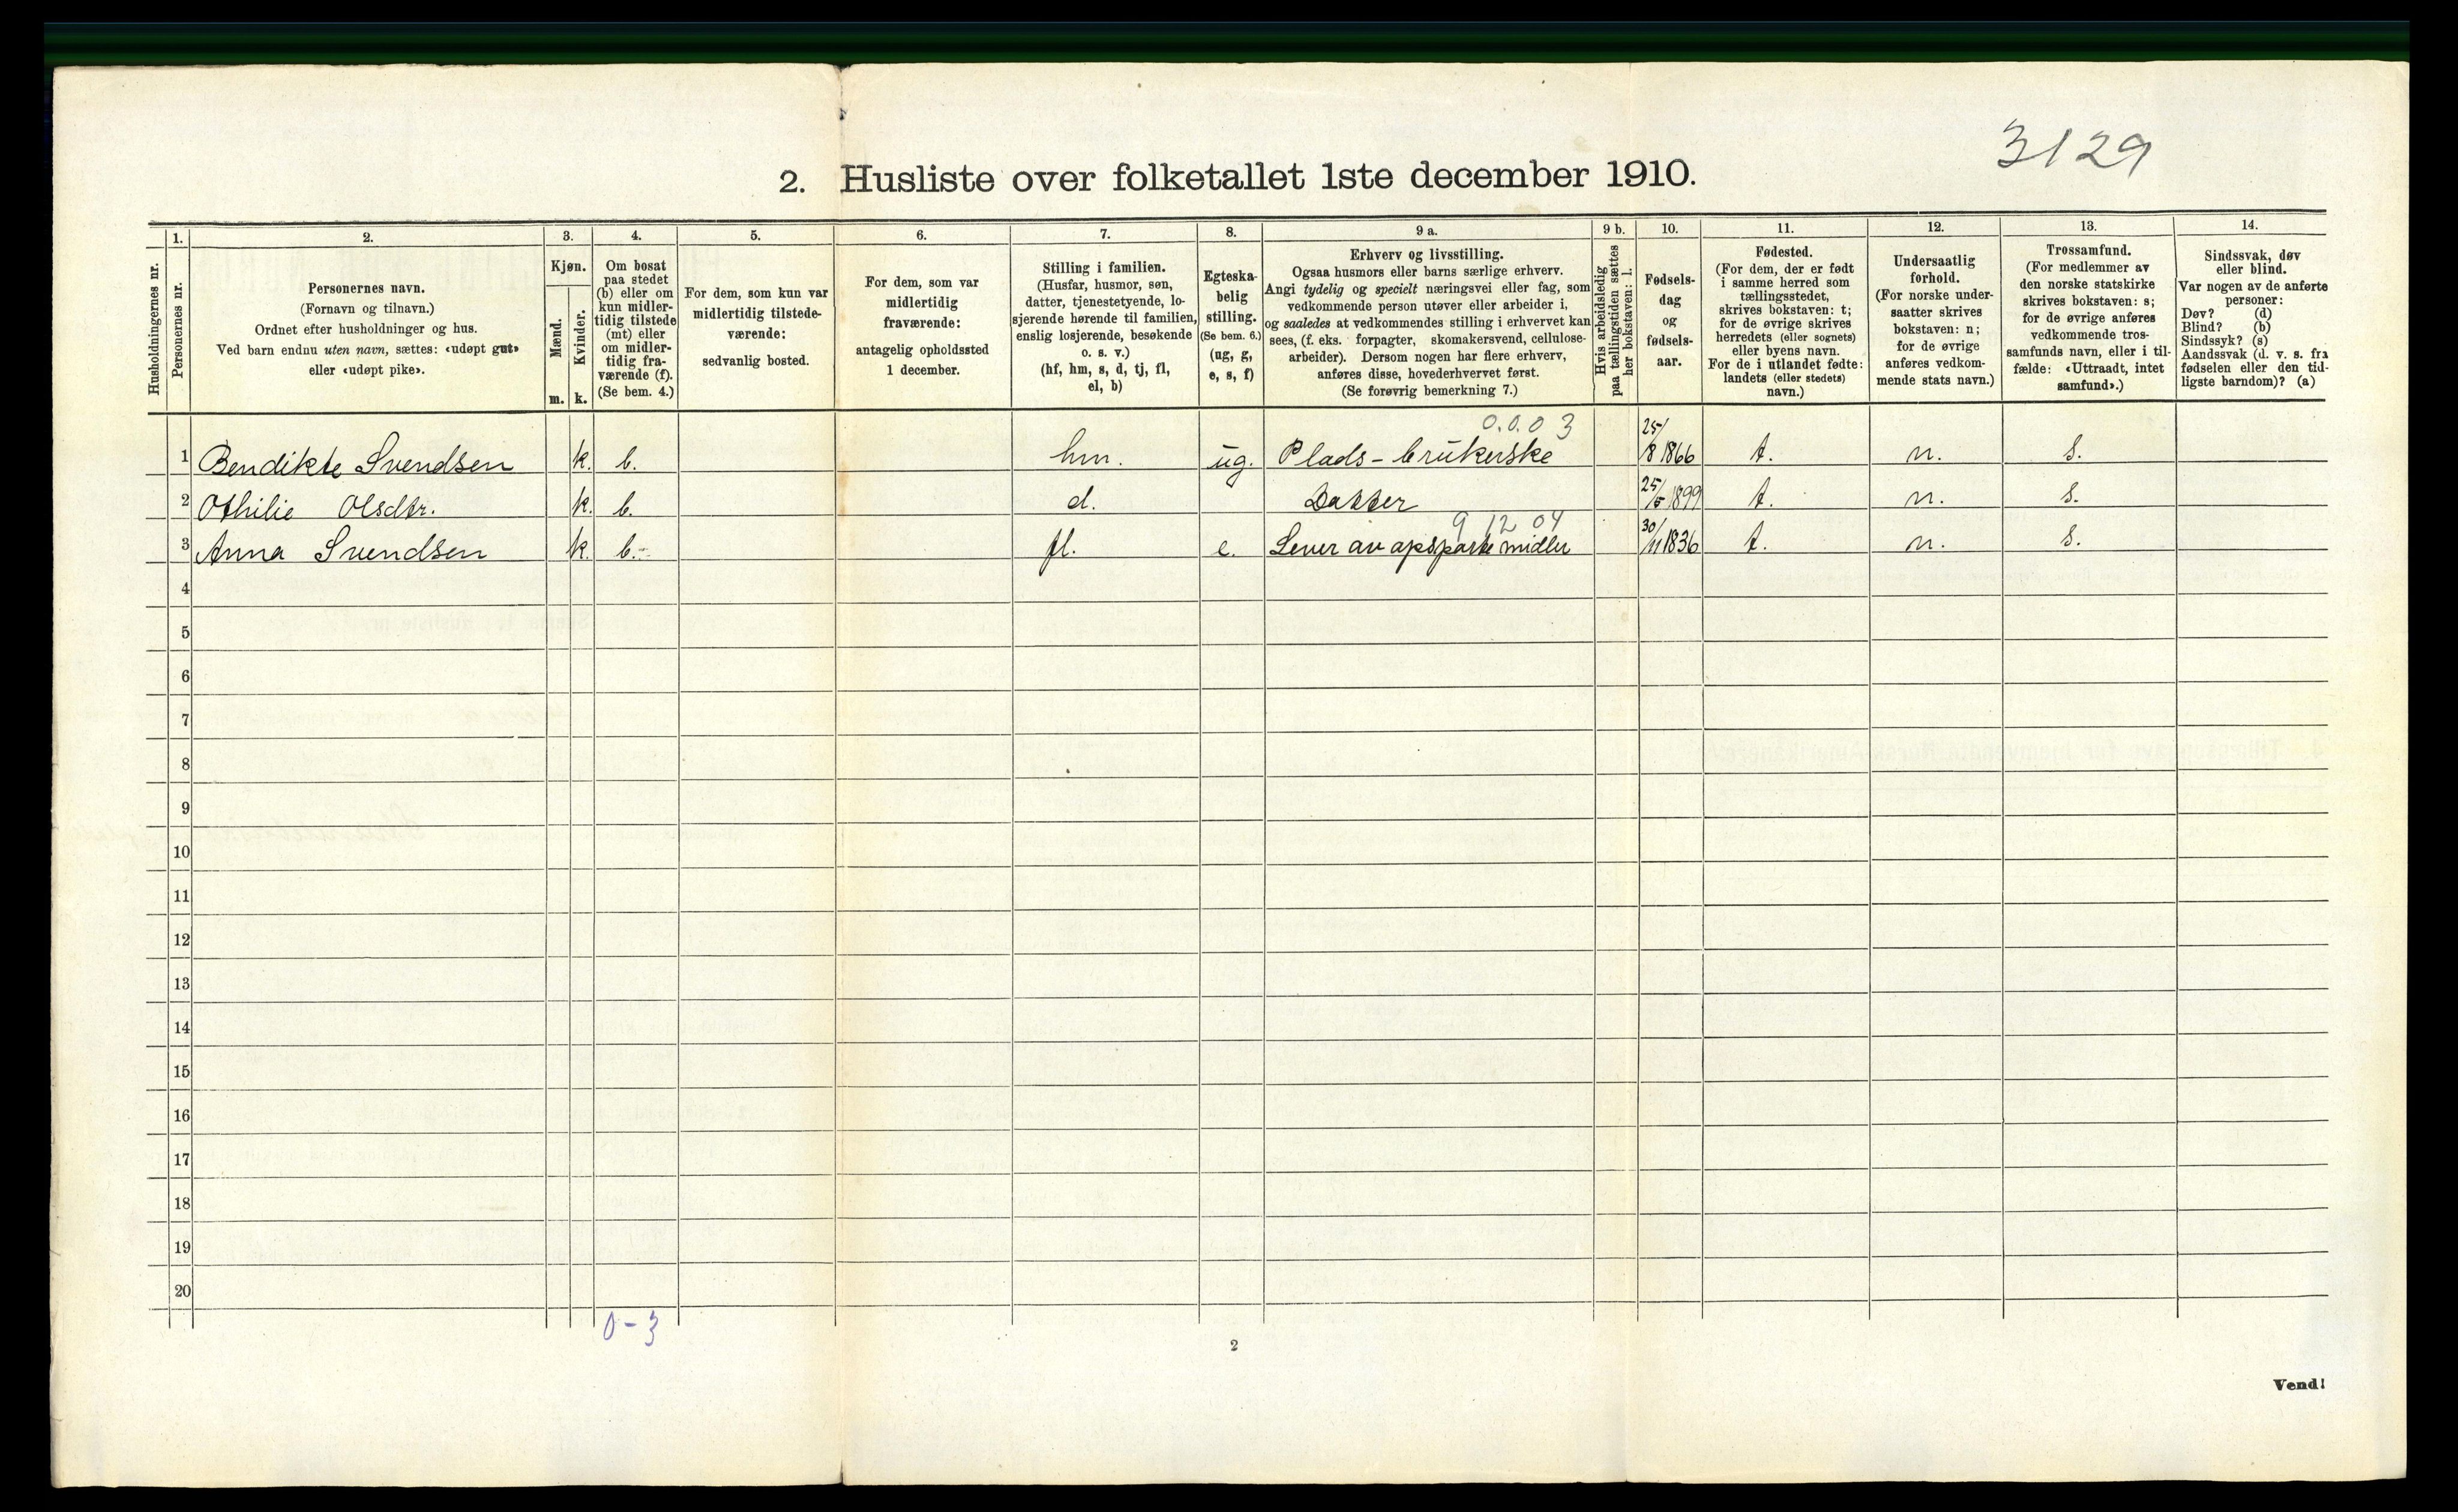 3129
2. Husliste over folketallet 1ste december 1910.
Husholdningernes nr.
1.
Personernes nr.
2.
Personernes navn.
(Fornavn og tilnavn.)
Ordnet efter husholdninger og hus.
Ved barn endnu uten navn, sættes: «udøpt gut»
eller «udøpt pike».
3.
Kjøn.
Mænd.
Kvinder.
m. k.
4.
Om bosat
paa stedet
(b) eller om
kun midler-
tidig tilstede
(mt) eller
om midler-
tidig fra-
værende (f).
(Se bem. 4.)
5.
For dem, som kun var
midlertidig tilstede-
værende:
sedvanlig bosted.
6.
For dem, som var
midlertidig
fraværende:
antagelig opholdssted
1 december.
7.
Stilling i familien.
(Husfar, husmor, søn,
datter, tjenestetyende, lo-
sjerende hørende til familien,
enslig losjerende, besøkende
o. s. v.)
(hf, hm, s, d, tj, fl,
el, b)
8.
Egteska-
belig
stilling.
(Se bem. 6.)
(ug, g,
e, s, f)
9 a.
Erhverv og livsstilling.
Ogsaa husmors eller barns særlige erhverv.
Angi tydelig og specielt næringsvei eller fag, som
vedkommende person utøver eller arbeider i,
og saaledes at vedkommendes stilling i erhvervet kan
sees, (f. eks. forpagter, skomakersvend, cellulose-
arbeider). Dersom nogen har flere erhverv,
anføres disse, hovederhvervet først.
(Se forøvrig bemerkning 7.)
9 b.
Hvis arbeidsledig
paa tællingstiden sættes
her bokstaven: l.
10.
Fødsels-
dag
og
fødsels-
aar.
11.
Fødested.
(For dem, der er født
i samme herred som
tællingsstedet,
skrives bokstaven: t;
for de øvrige skrives
herredets (eller sognets)
eller byens navn.
For de i utlandet fødte:
landets (eller stedets)
navn.)
12.
Undersaatlig
forhold.
(For norske under-
saatter skrives
bokstaven: n;
for de øvrige
anføres vedkom-
mende stats navn.)
13.
Trossamfund.
(For medlemmer av
den norske statskirke
skrives bokstaven: s;
for de øvrige anføres
vedkommende tros-
samfunds navn, eller i til-
fælde: «Uttraadt, intet
samfund».)
14.
Sindssvak, døv
eller blind.
Var nogen av de anførte
personer:
Døv? (d)
Blind? (b)
Sindssyk? (s)
Aandssvak (d. v. s. fra
fødselen eller den tid-
ligste barndom)? (a)
0.0.0 3
1 Bendikte Svendsen k. b. hm. ug. Plads-brukerske 25/8 1866 t. n. s.
2 Othilie Olsdtr. k. b. d. Datter 25/5 1899 t. n. s.
9 12 04
3 Anna Svendsen k. b.- fl. e. Lever av opsparte midler 30/11 1836 t. n. s.
4
5
6
7
8
9
10
11
12
13
14
15
16
17
18
19
20
0-3
2
Vend!